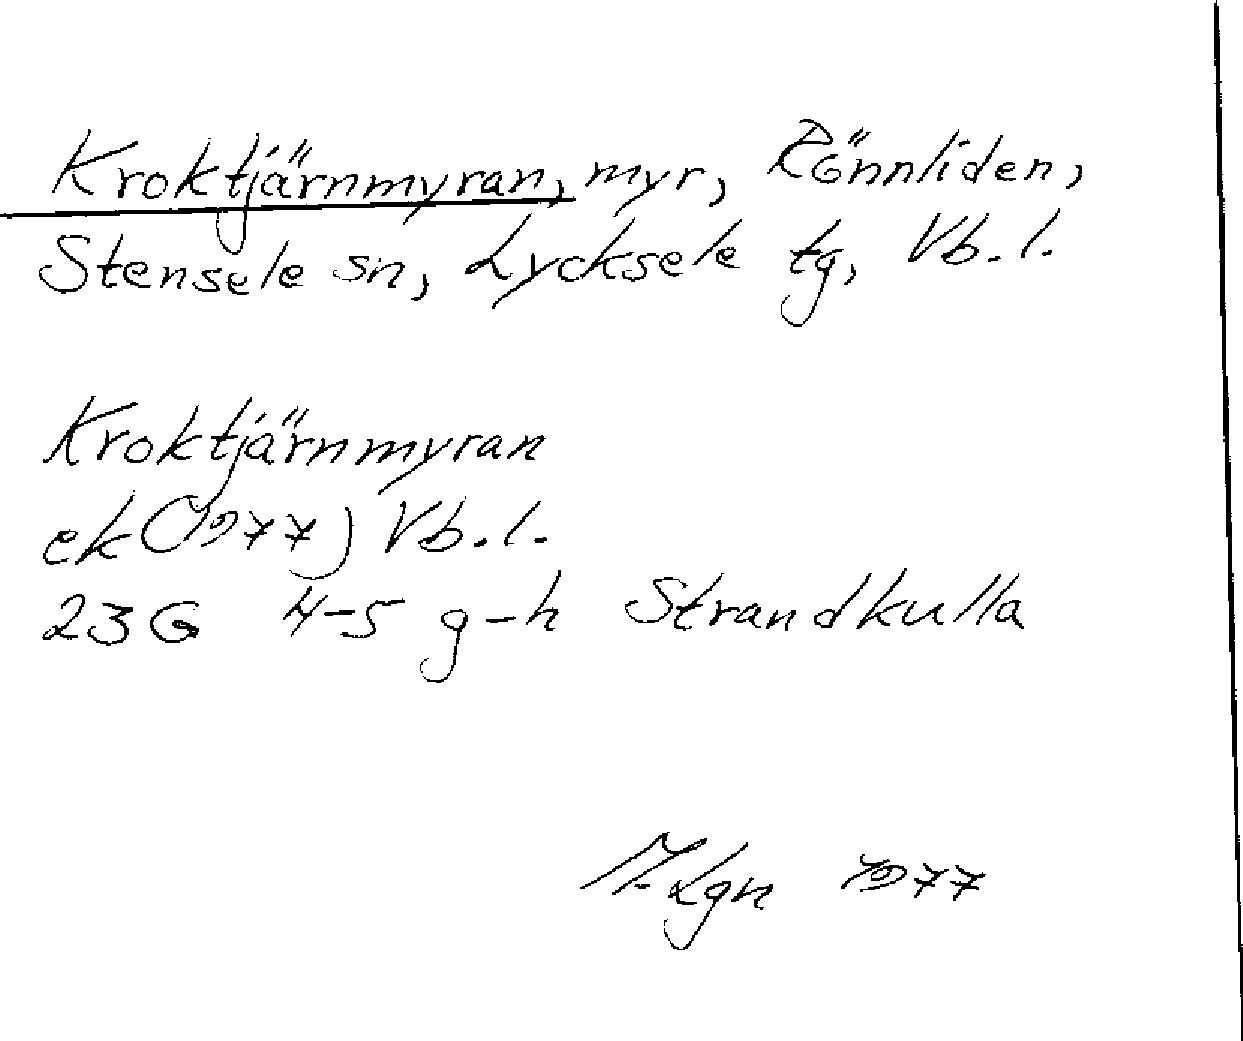 Kroktjärnmyran, myr, Rönnliden,
Stensele sn, Lycksele tg, Vb. l.
Kroktjärnmyran
ek (1977) Vb. l.
23G 4-5 g-h Strandkulla
Lgn 1977